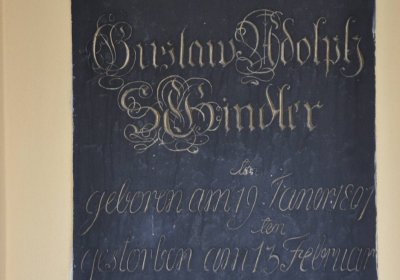 Gustaw Adolph
SCHindler
geboren am 19. Janor: 1807
ten
gestorben am 13. Februar